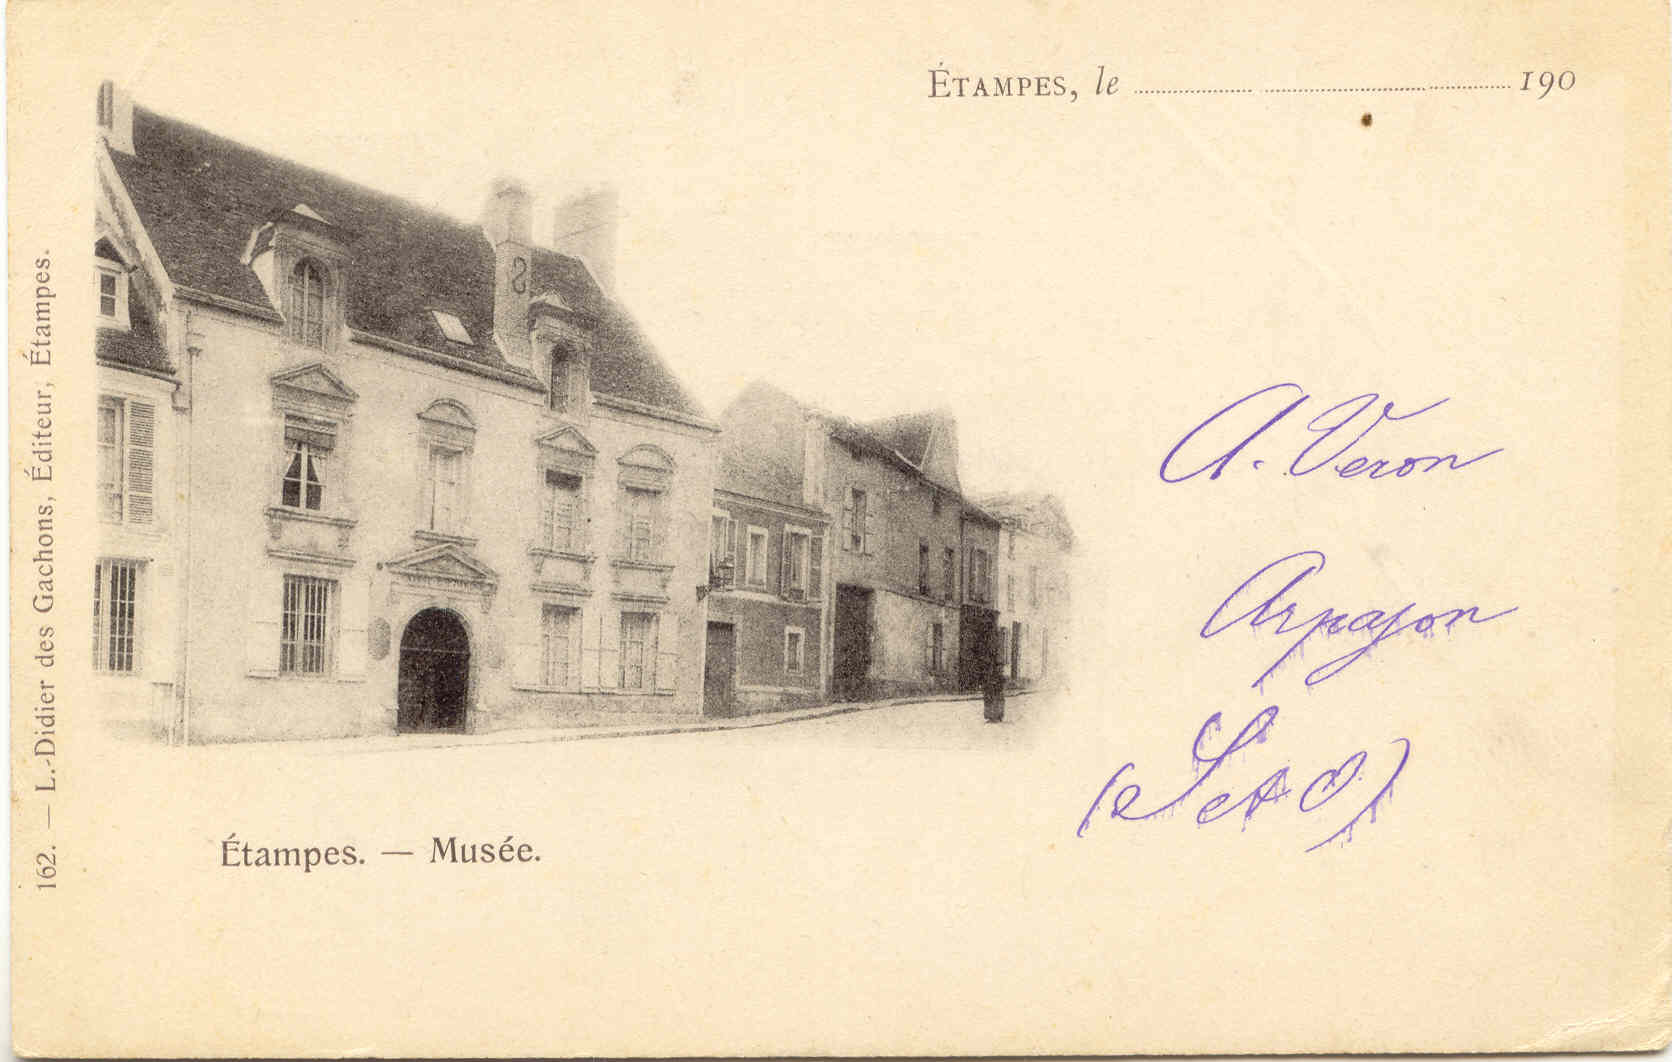 ÉTAMPES, le 190
A. Veron
Arpajon
(S et O)
Étampes. — Musée.
162. — L.-Didier des Gachons, Éditeur, Étampes.